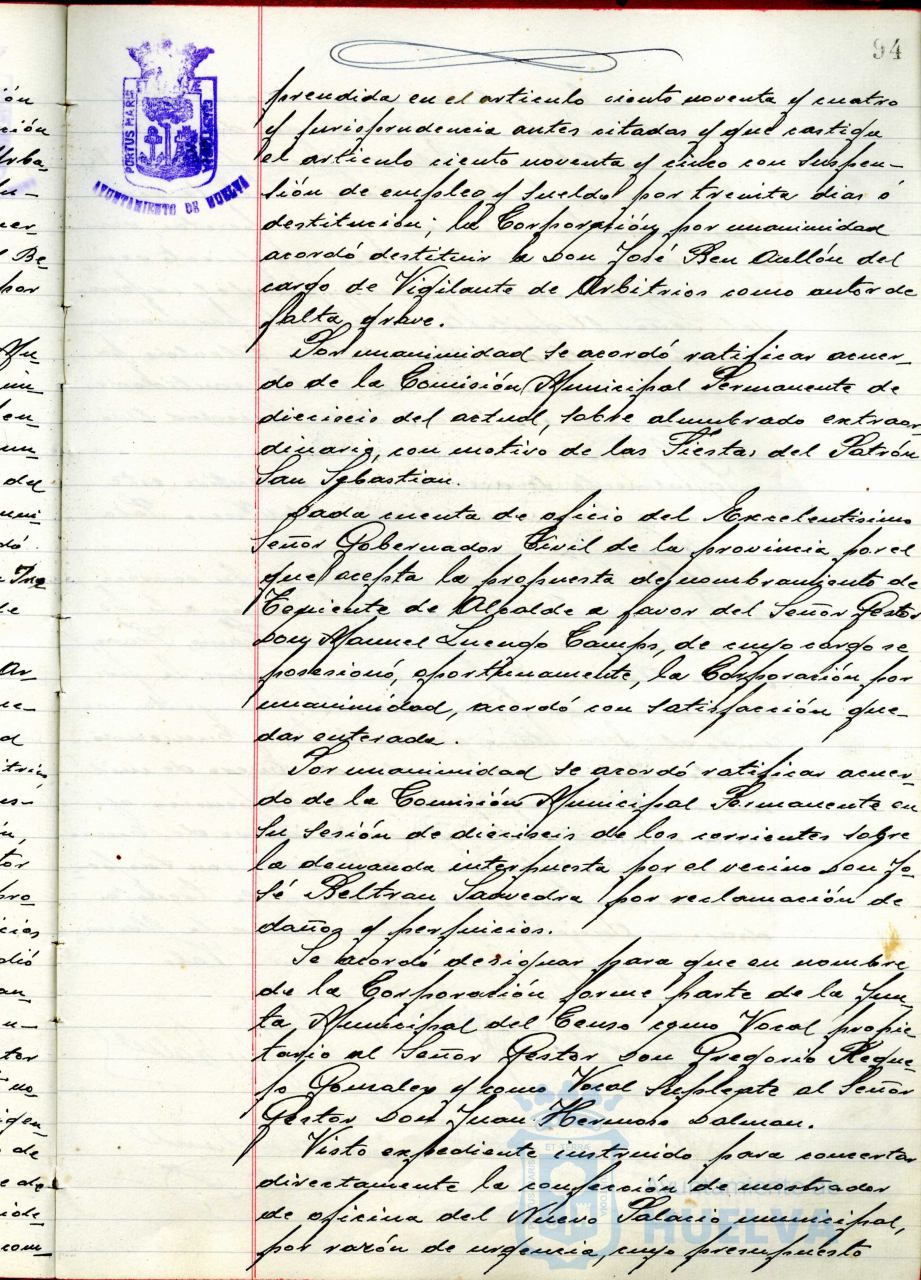 94
PORTUS MARIS ET TERRÆ CUSTODIA
AYUNTAMIENTO DE HUELVA
prendida en el articulo ciento noventa y cuatro
y jurisprudencia antes citadas y que castiga
el articulo ciento noventa y cinco con suspen-
sión de empleo y sueldo por treinta dias ó
destitución; la Corporación por unanimidad
acordó destituir a Don José Ben Aullón del
cargo de Vigilante de Arbitrios como autor de
falta grave.
Por unanimidad se acordó ratificar acuer-
do de la Comisión Municipal Permanente de
dieciocio del actual, sobre alumbrado extraor
dinario, con motivo de las Fiestas del Patrón
San Sebastian.
Dada cuenta de oficio del Excelentisimo
Señor Gobernador Civil de la provincia por el
que acepta la propuesta de nombramiento de
Teniente de Alcalde a favor del Señor Gestor
Don Manuel Luengo Camps, de cuyo cargo se
posesionó, oportunamente, la Corporación por
unanimidad, acordó con satisfacción que-
dar enterada.
Por unanimidad se acordó ratificar acuer-
do de la Comisión Municipal Permanente en
su sesión de dieciseis de los corrientes sobre
la demanda interpuesta por el vecino Don Jo-
sé Beltran Saavedra por reclamación de
daños y perjuicios.
Se acordó designar para que en nombre
de la Corporación forme parte de la Jun-
ta Municipal del Censo como Vocal propie
tario al Señor Gestor Don Gregorio Reque-
jo Gonzalez y como Vocal Suplente al Señor
Gestor Don Juan Hermoso Dalman.
Visto expediente instruido para concertar
directamente la confección de mostrador
de oficina del Nuevo Palacio municipal,
por razón de urgencia, cuyo presupuesto
Ayuntamiento de
HUELVA